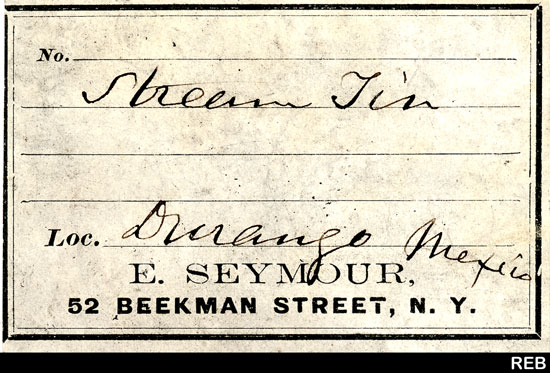 No.
Stream Tin
Loc. Durango Mexico
E. SEYMOUR,
52 BEEKMAN STREET, N. Y.
REB